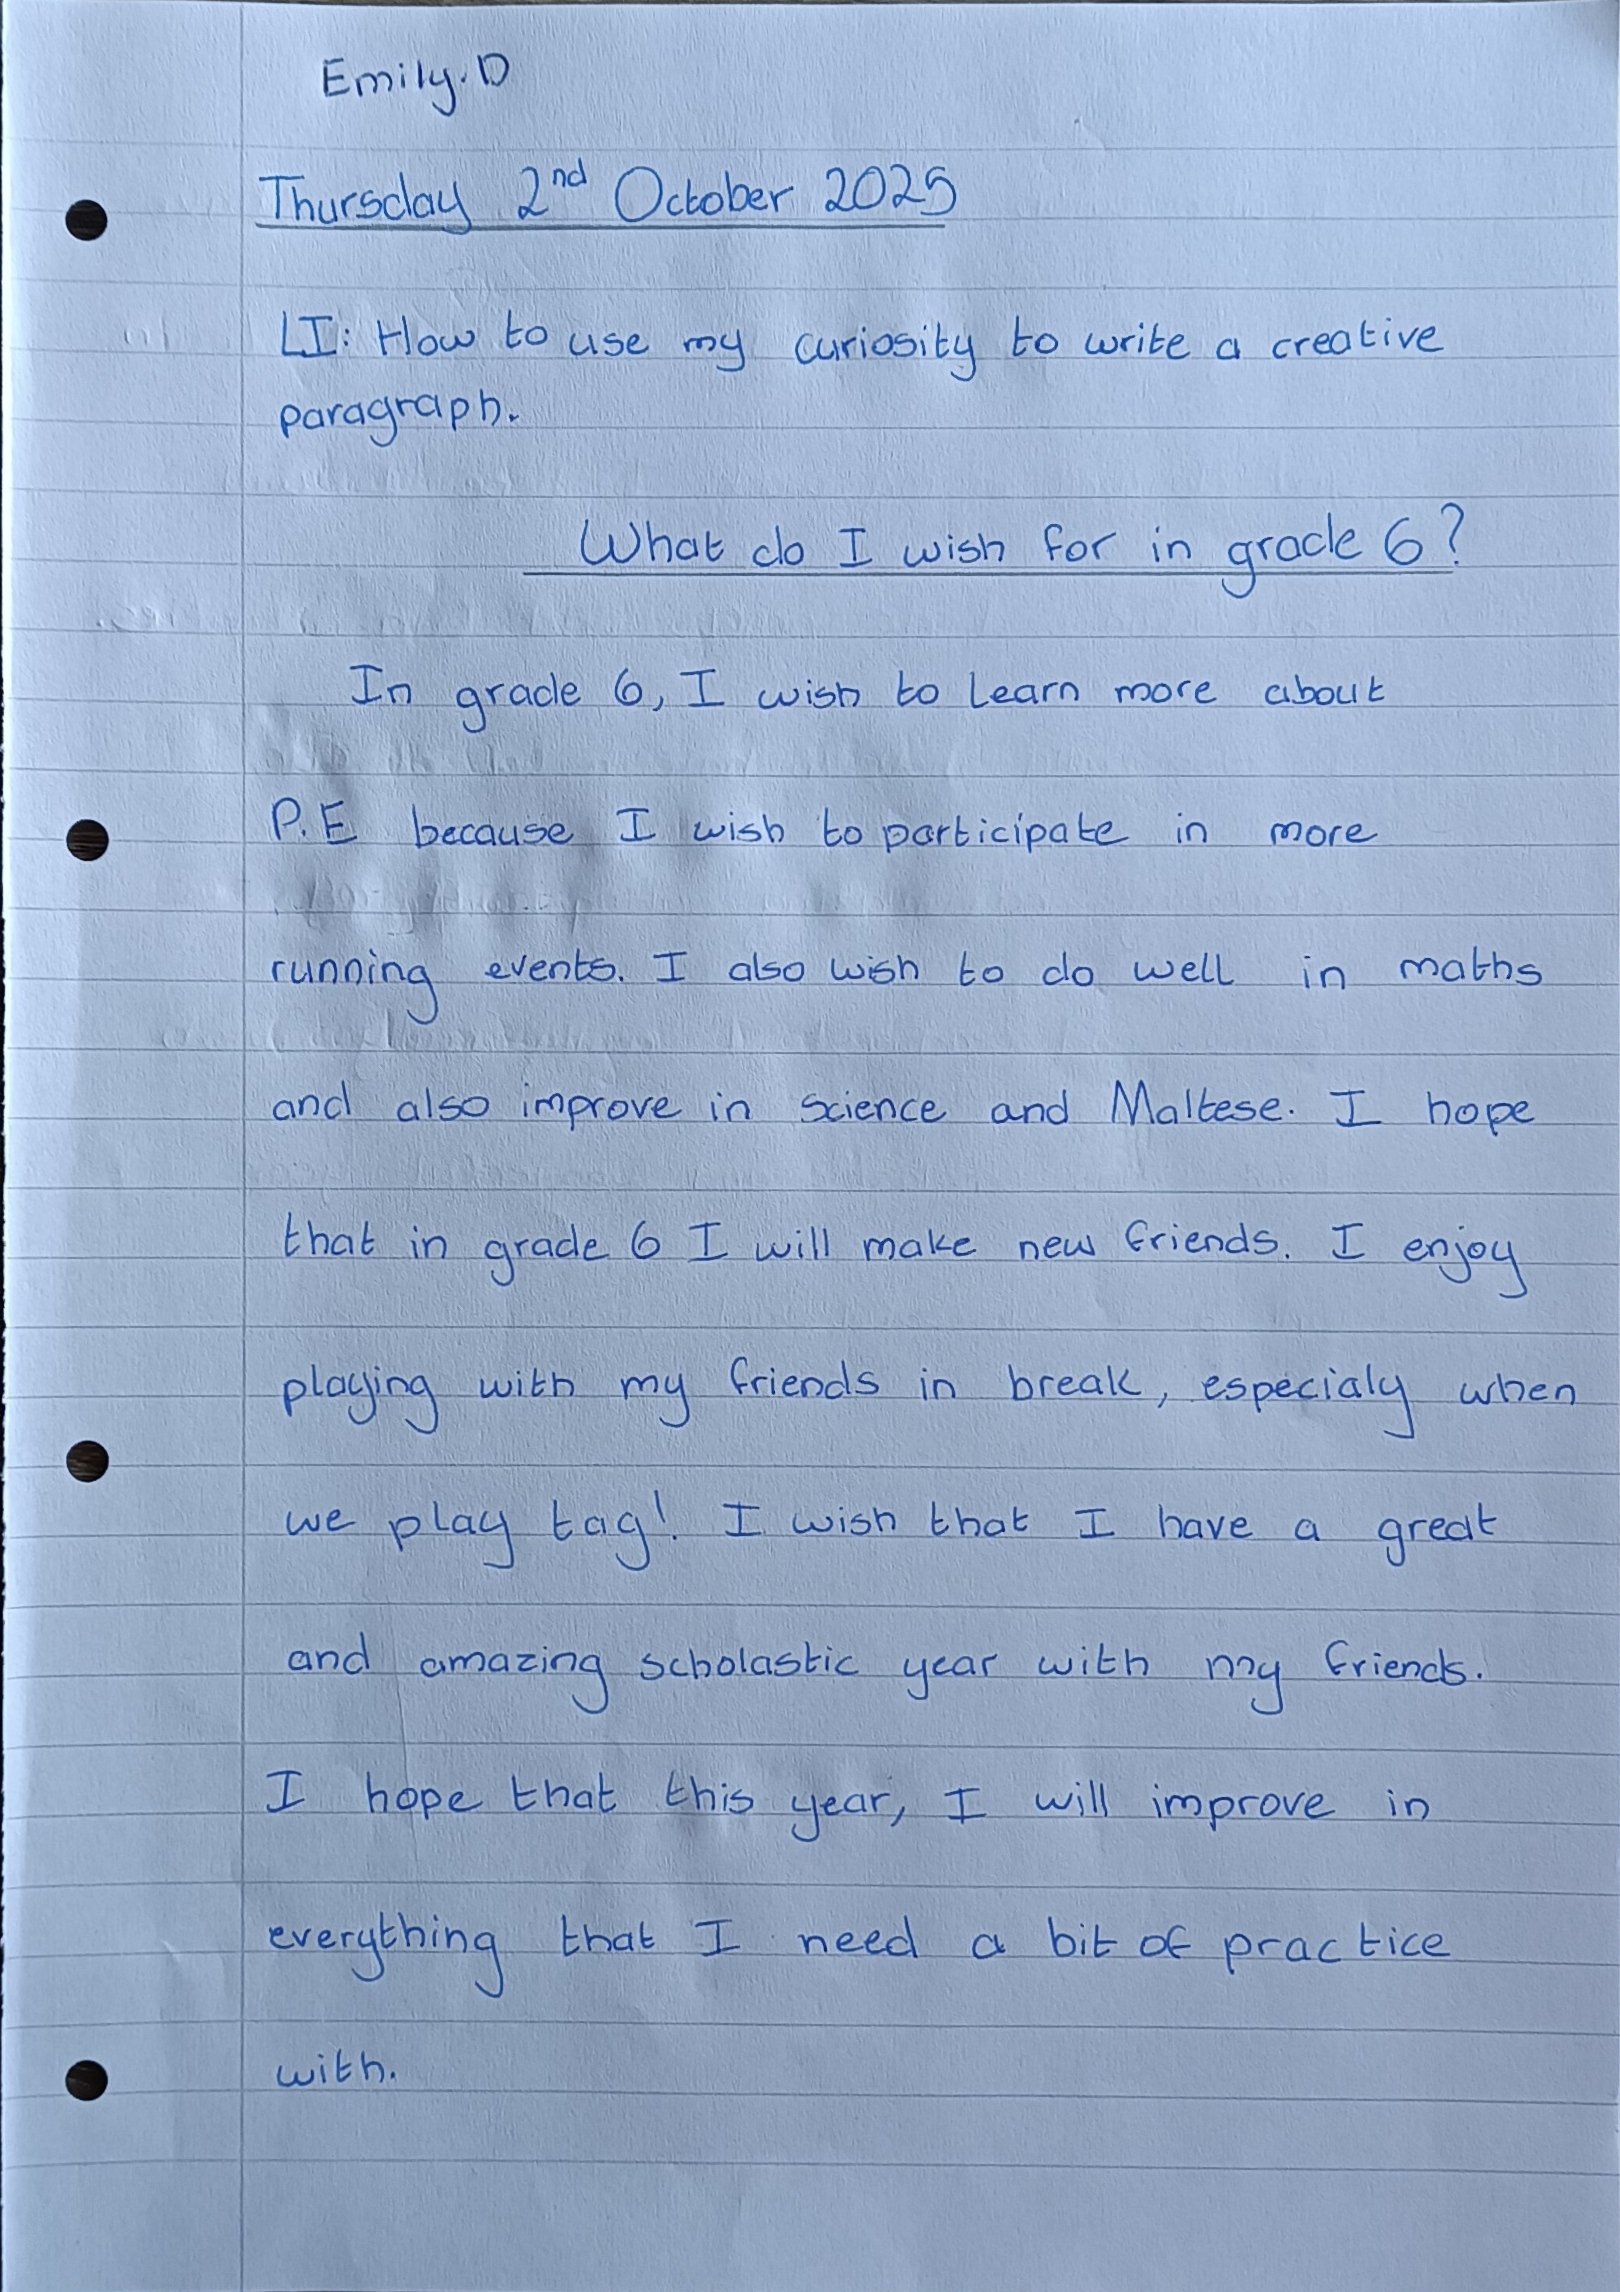 Emily.D
Thursday 2nd October 2025
LI: How to use my curiosity to write a creative
paragraph.
What do I wish for in grade 6?
In grade 6, I wish to learn more about
P.E because I wish to participate in more
running events. I also wish to do well in maths
and also improve in science and Maltese. I hope
that in grade 6 I will make new friends. I enjoy
playing with my friends in break, especialy when
we play tag! I wish that I have a great
and amazing scholastic year with my friends.
I hope that this year, I will improve in
everything that I need a bit of practice
with.